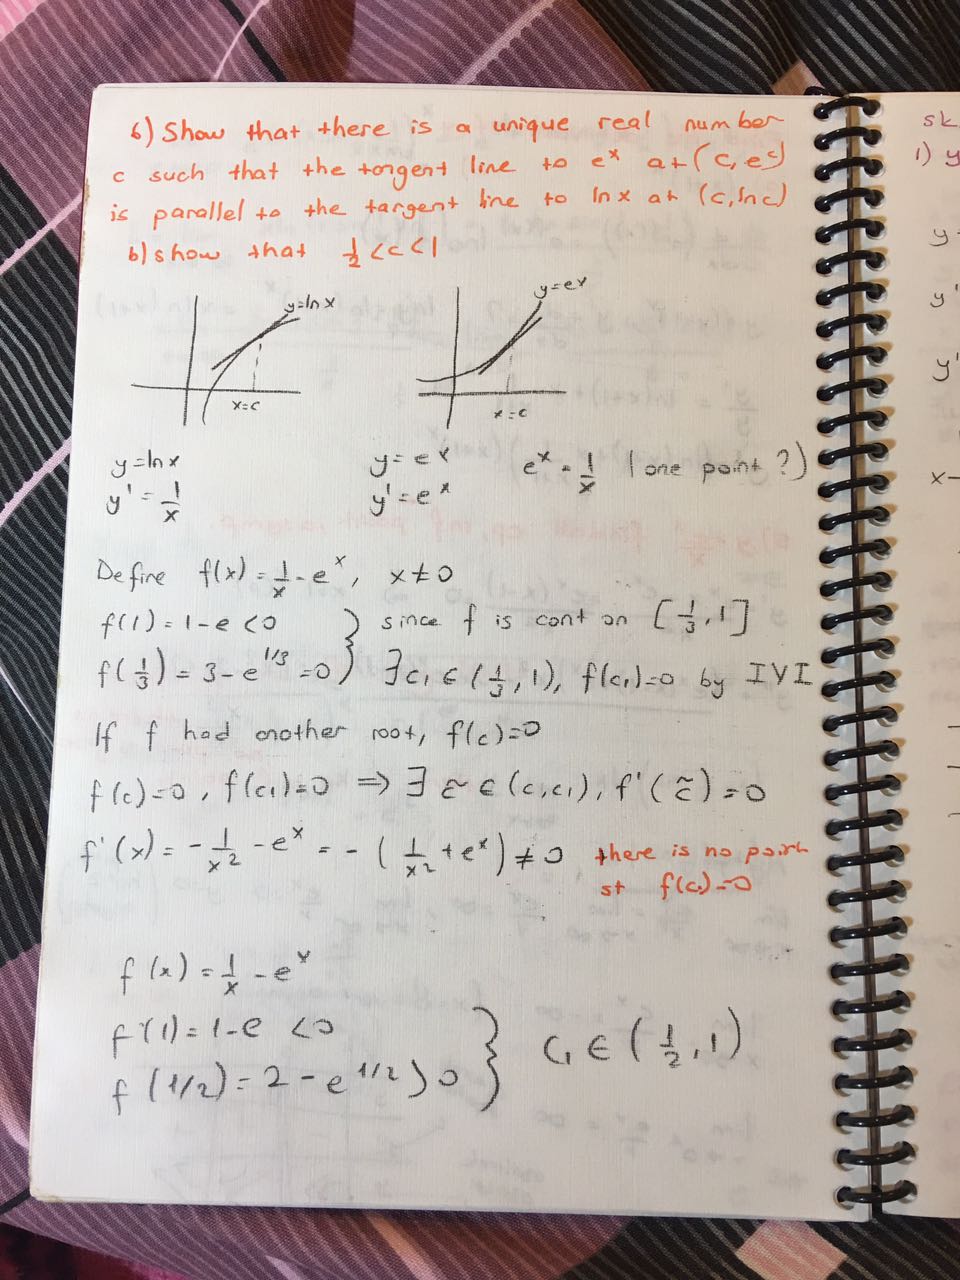 6) Show that there is a unique real number
c such that the tangent line to e^x at (c, e^c)
is parallel to the targent line to ln x at (c, ln c)
b) show that 1/2 < c < 1
y=ln x
y=e^x
x=c
x=c
y=ln x
y' = 1/x
y= e^x
y' = e^x
e^x = 1/x (one point?)
Define f(x) = 1/x - e^x, x ≠ 0
f(1) = 1-e <0
f(1/3) = 3 - e^1/3 =0
} since f is cont on [1/3, 1]
∃ c₁ ∈ (1/3, 1), f(c₁)=0 by IVI
If f had another root, f(c)=0
f(c)=0, f(c₁)=0 ⟹ ∃ c̃ ∈ (c, c₁), f'(c̃) = 0
f'(x) = - 1/x² - e^x = - (1/x² + e^x) ≠ 0
there is no point
st f(c₁)=0
f(x) = 1/x - e^x
f(1) = 1-e <0
f(1/2) = 2 - e^1/2 > 0
} c₁ ∈ (1/2, 1)
sk
1) y
y
y'
y'
x-